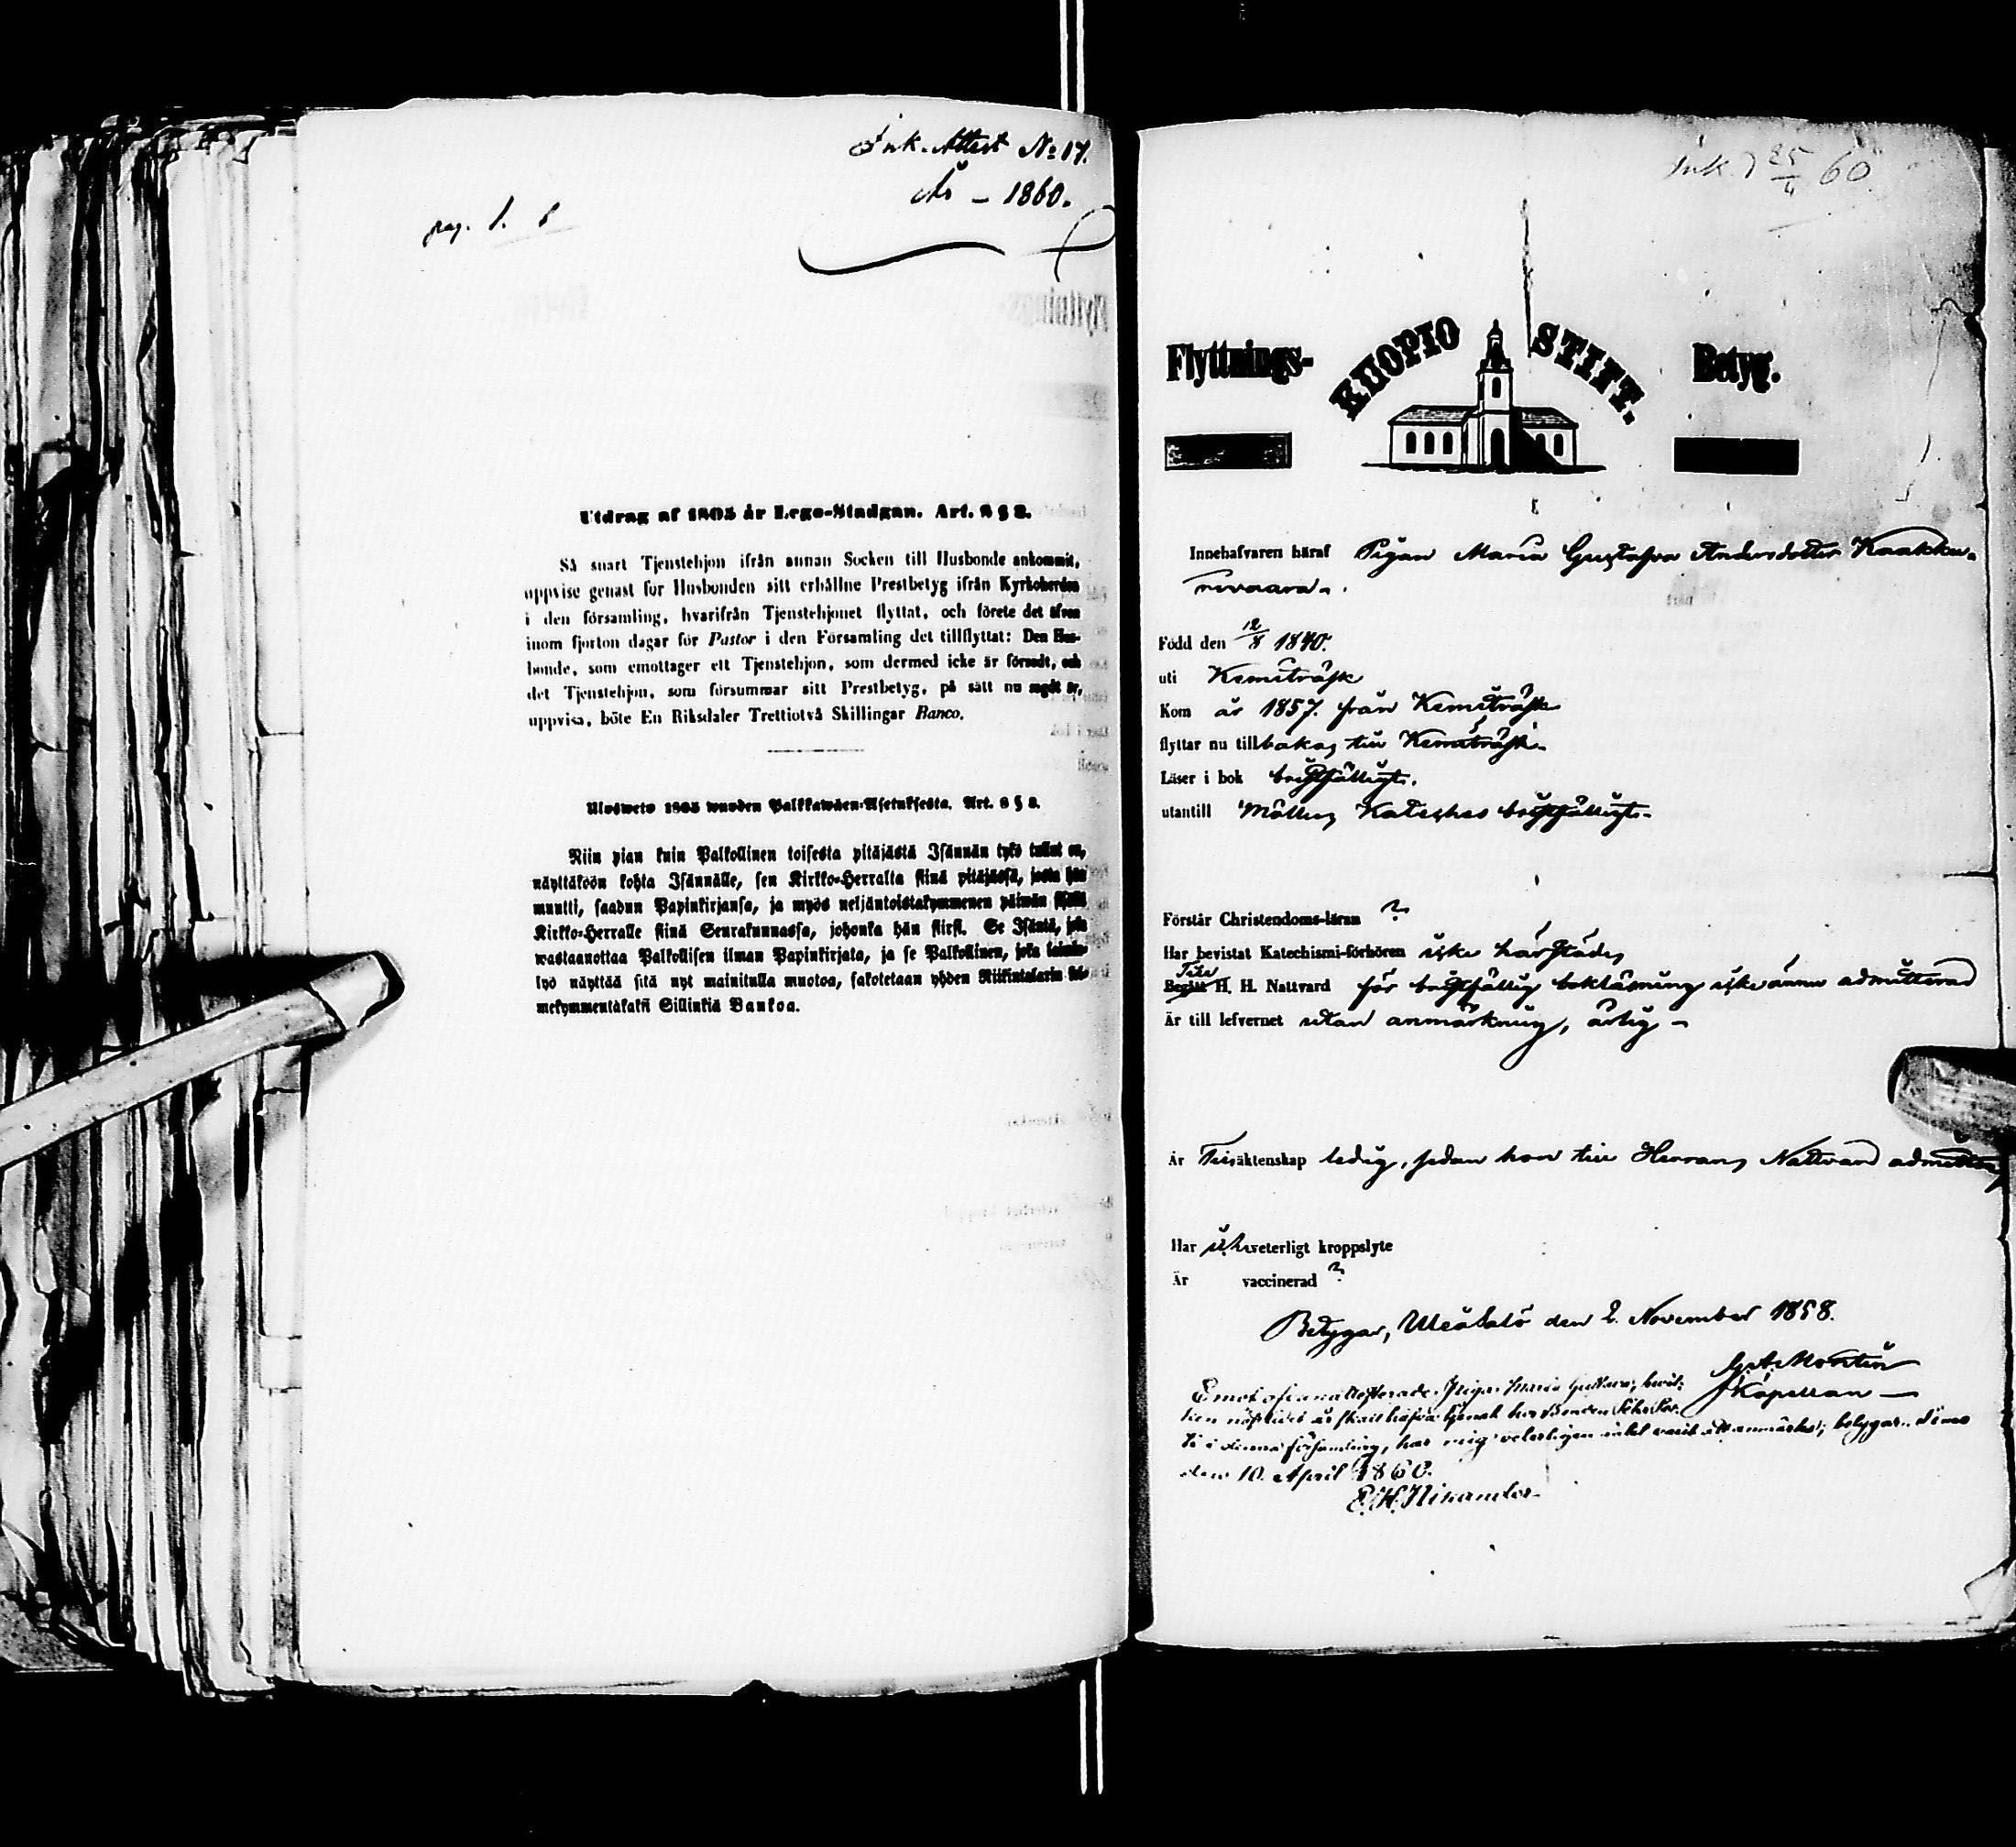 Ink. Attest No 17.
År – 1860.
pag. 1.
Utdrag af 1805 år Lego-Stadgan. Art. 8 § 2.
Så snart Tjenstehjon ifrån annan Socken till Husbonde ankommit,
uppvise genast för Husbonden sitt erhållne Prestbetyg ifrån Kyrkoherden
i den församling, hvarifrån Tjenstehjonet flyttat, och förete det äfven
inom fjorton dagar för Pastor i den Församling det tillflyttat: Den Hus-
bonde, som emottager ett Tjenstehjon, som dermed icke är försedt, och
det Tjenstehjon, som försummar sitt Prestbetyg, på sätt nu sagdt är,
uppvisa, böte En Riksdaler Trettiotvå Skillingar Banco.
Ulosweto 1805 wuoden Palkkawäen-Asetuksesta. Art. 8 § 2.
Niin pian kuin Palkollinen toisesta pitäjästä Isännän tykö tullut on,
näyttäköön kohta Isännälle, sen Kirkko-Herralta siinä pitäjässä, josta hän
muutti, saadun Papinkirjansa, ja myös neljäntoistakymmenen päiwän sisällä
Kirkko-Herralle siinä Seurakunnassa, johonka hän siirsi. Se Isäntä, joka
wastaanottaa Palkollisen ilman Papinkirjata, ja se Palkollinen, joka laimin-
lyö näyttää sitä nyt mainitulla muotoa, sakotetaan yhden Riikintalarin kol-
mekymmentäkaksi Sillinkiä Bankoa.
Ink. d 25/4 60
Flyttnings- KUOPIO STIFT. Betyg.
Innehafvaren häraf Pigan Maria Gustafva Andersdotter Kaakku-
rivaara.
Född den 12/8 1840.
uti Kemiträsk
Kom år 1857. från Kemiträsk
flyttar nu tillbakas till Kemiträsk.
Läser i bok bristfälligt.
utantill Möllers Kateches bristfälligt.
Förstår Christendoms-läran ?
Har bevistat Katechismi-förhören icke härstädes
Till
Begått H. H. Nattvard för bristfällig bokläsning icke ännu admitterad
Är till lefvernet utan anmärkning, ärlig –
Är Till äktenskap ledig, sedan hon till Herrans Nattvard admitteras
Har icke veterligt kroppslyte
Är vaccinerad ?
Betygar, Uleåsalo den 2. November 1858.
G. A. Montin
Kapellan
Emot ofvanattesterade Pigan Maria Gustava,
i denna församling, har mig veterligen intet varit att anmärka; betygar. Simo
den 10. April 1860.
E. H. Nikander